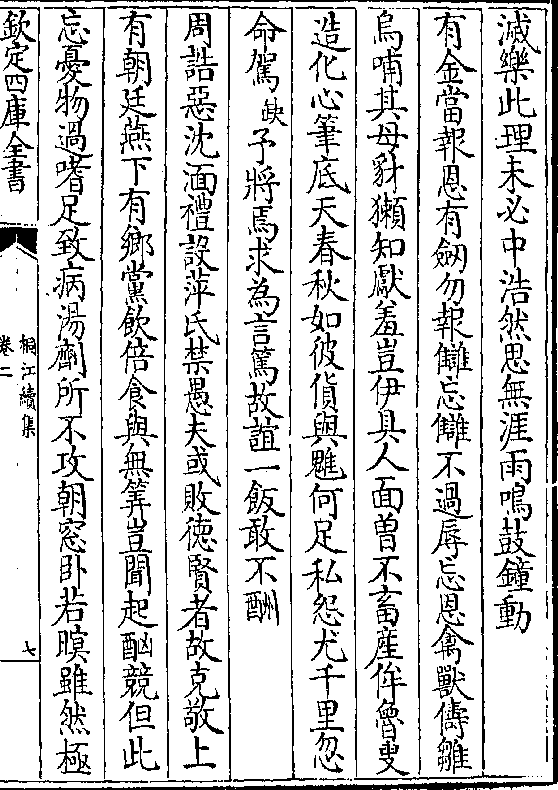 滅樂此理未必中浩然思無涯雨鳴鼓鐘動
有金當報恩有劒勿報讎忘讎不過辱忘恩禽獸儔雛
烏哺其母豺獺知獻羞豈伊具人面曾不畜産侔魯叟
造化心筆底天春秋如彼貨與魋何足私怨尤千里忽
命駕缺予將焉求為言篤故誼一飯敢不酬
周誥惡沈湎禮設萍氏禁愚夫或敗德賢者故克敬上
有朝廷燕下有鄉黨飲倍食與無筭豈聞起酗競但此
忘憂物過嗜足致病湯劑所不攻朝窓卧若瞑雖然極
欽定四庫全書
桐江續集
卷二
七